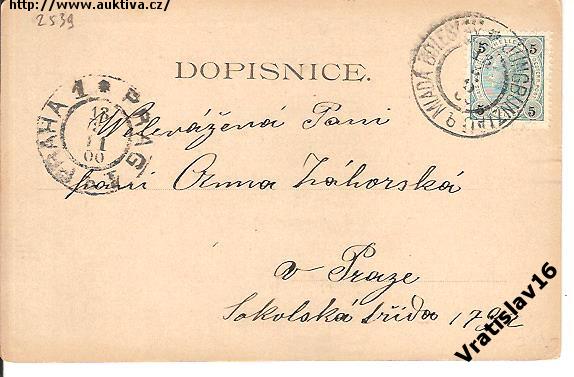 http://www.auktiva.cz/
2539
DOPISNICE.
PRAHA 1 * PRAG 1
13
11
00
MLADÁ BOLESLAV JUNGBUNZLAU
5 5
5 5
Velevážená Paní
paní Anna Záhorská
v Praze
Sokolská třída 179
Vratislav16